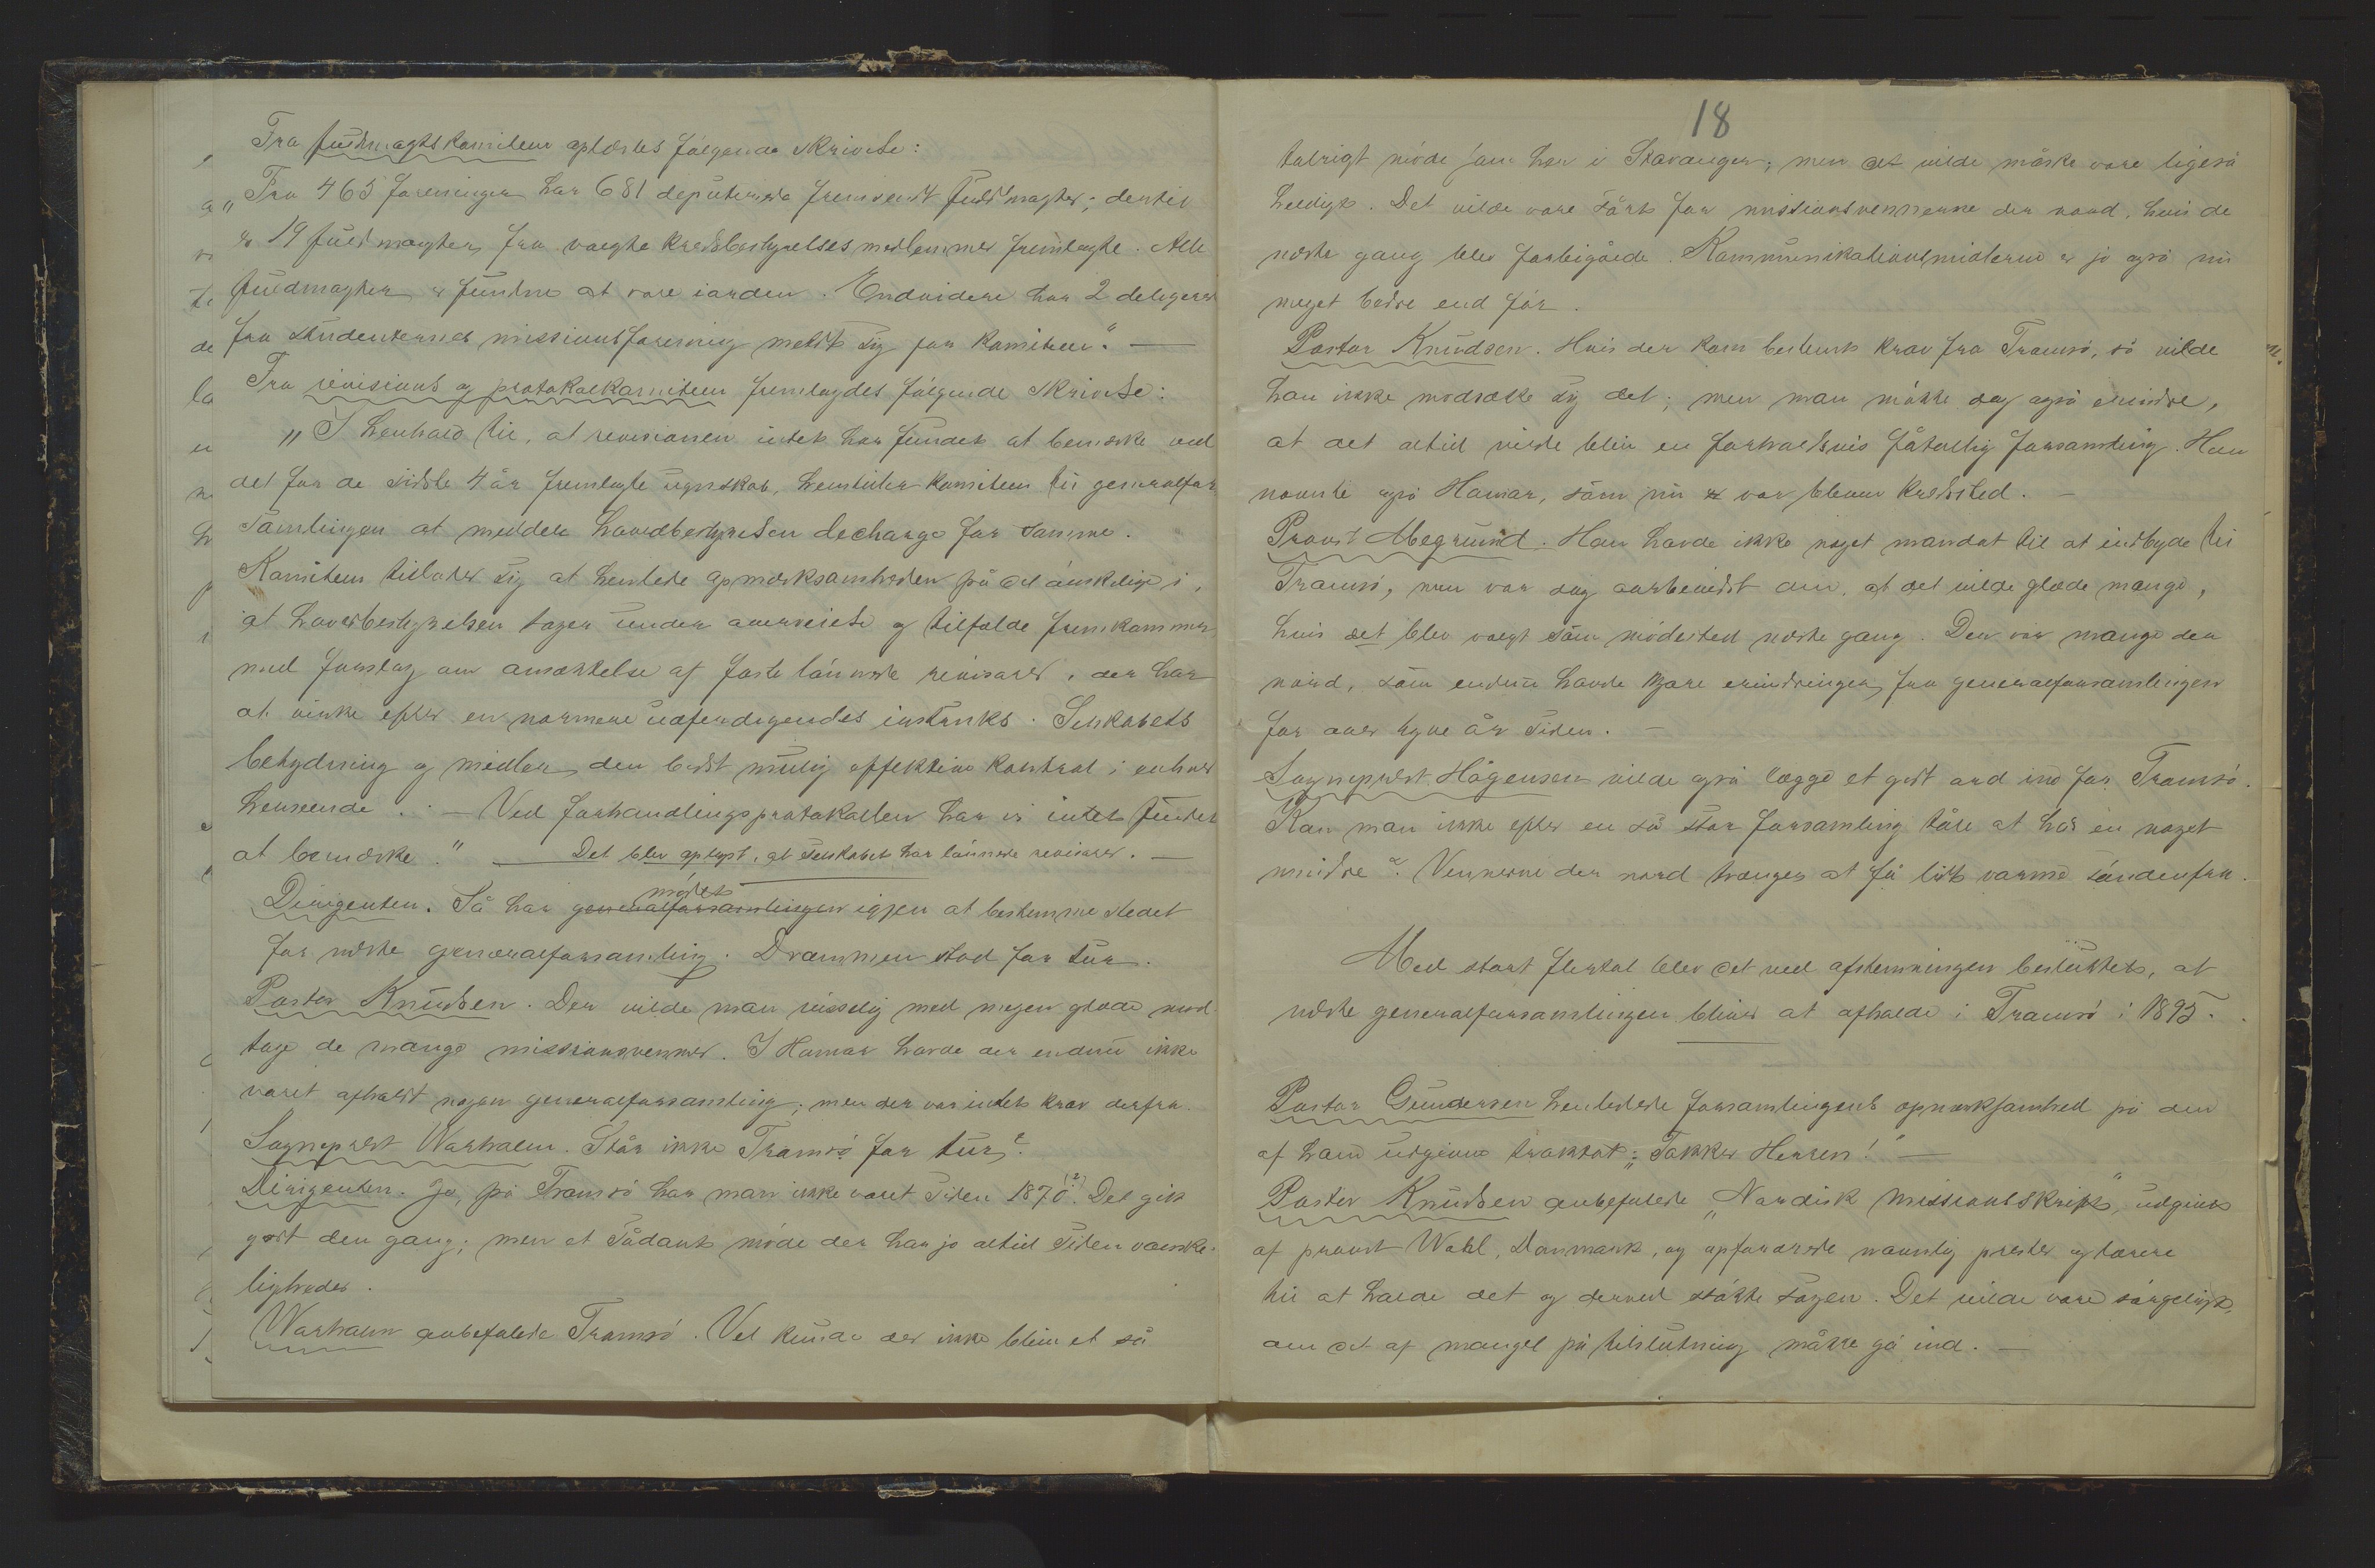 Fra fuldmagtskomiteen oplæstes følgende skrivelse:
„Fra 463 foreninger har 681 deputerede fremsendt fuldmagter; dertil
er 19 fuldmagter fra valgte kredsbestyrelsesmedlemmer fremlagte. Alle
fuldmagter er fundne at være iorden. Endvidere har 2 delegerede
fra studenternes missionsforening meldt sig for komiteen." —
Fra revisions og protokolkomiteen fremlagdes følgende skrivelse:
„I henhold til, at revisionen intet har fundet at bemærke ved
det for de sidste 4 år fremlagte regnskab, henstiller komiteen til generalfor
samlingen at meddele hovedbestyrelsen decharge for samme.
Komiteen tillader sig at henlede opmærksomheden på det ønskelige i,
at hovedbestyrelsen tager under overveielse og tilfælde fremkommer
med forslag om ansættelse af faste lønnede revisorer, der har
at virke efter en nærmere udfærdigendes instruks. Selskabets
betydning og midler den bedst mulig effektive kontrol i enhver
henseende. — Ved forhandlingsprotokollen har vi intet fundet
at bemærke." — Det blev oplyst, at selskabet har lønnede revisorer. —
mødet
Dirigenten. Så har generalforsamlingen igjen at bestemme stedet
for næste generalforsamling. Drammen stod for tur.
Pastor Knudsen. Der vilde man visselig med megen glæde mod
tage de mange missionsvenner. I Hamar havde der endnu ikke
været afholdt nogen generalforsamling; men der var intet krav derfra.
Sogneprest Warholm. Står ikke Tromsø for tur?
Dirigenten. Jo, på Tromsø har man ikke været siden 1870(?). Det gik
godt den gang; men et sådant møde der har jo altid siden vanske-
ligheder.
Warholm anbefalede Tromsø. Vel kunde der ikke blive et så
18
talrigt møde som her i Stavanger; men det vilde måske være ligeså
heldigt. Det vilde være sårt for missionsvennerne der nord, hvis de
næste gang blev forbigåede. Kommunikationsmidlerne er jo også nu
meget bedre end før.
Pastor Knudsen. Hvis der kom bestemt krav fra Tromsø, så vilde
han ikke modsætte sig det; men man måtte dog også erindre,
at det altid vilde blive en forholdsvis fåtallig forsamling. Han
nævnte også Hamar, som nu var bleven kredssted. —
Provst Abegrund. Han havde ikke noget mandat til at indbyde til
Tromsø, men var dog overbevist om, at det vilde glæde mange,
hvis det blev valgt som mødested næste gang. Der var mange der
nord, som endnu havde kjære erindringer fra generalforsamlingen
for over tyve år siden. —
Sogneprest Högensen vilde også lægge et godt ord ind for Tromsø.
Kan man ikke efter en så stor forsamling tåle at har en noget
mindre? Vennerne der nord trænger at få lidt varme søndenfra.
Med stort flertal blev det ved afstemningen besluttet, at
næste generalforsamlingen bliver at afholde i Tromsø i 1895.
Pastor Gundersen henledede forsamlingens opmærksomhed på den
af ham udgivne traktat: „Takker Herren!" —
Pastor Knudsen anbefalede „Nordisk missionsskrift", udgivet
af provst Wahl, Danmark, og opfordrede navnlig prester og lærere
til at holde det og derved støtte sagen. Det vilde være sørgeligt,
om det af mangel på tilslutning måtte gå ind. —